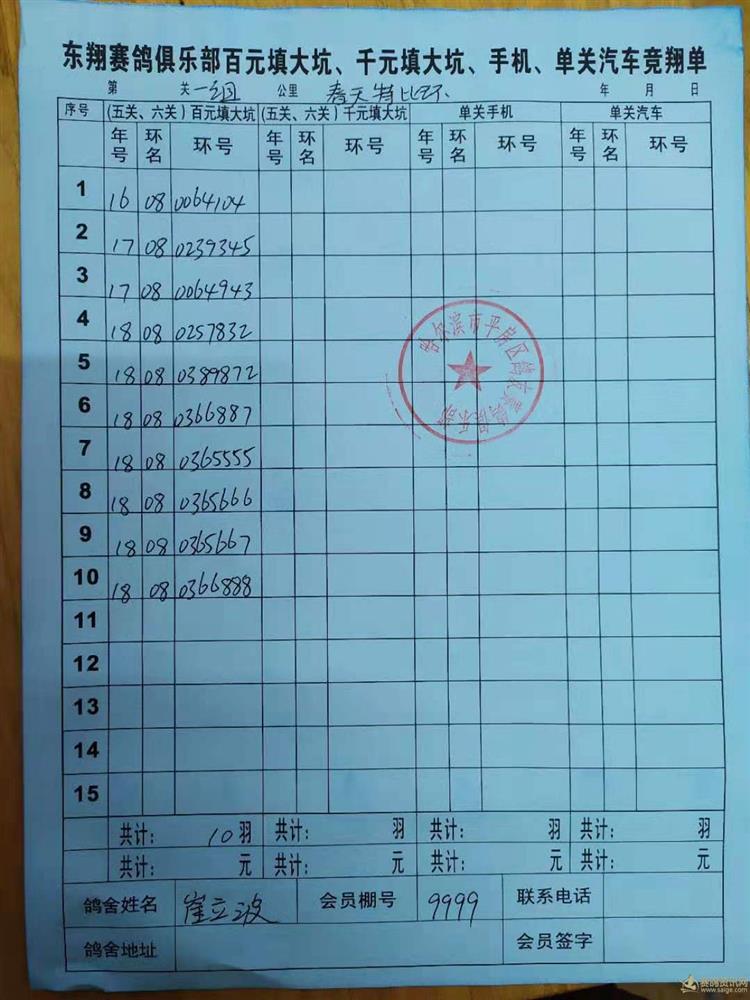 东翔赛鸽俱乐部百元填大坑、千元填大坑、手机、单关汽车竞翔单
第 关 一组 公里 春天特比环、 年 月 日
序号 (五关、六关)百元填大坑 (五关、六关)千元填大坑 单关手机 单关汽车
年号 环名 环号 年号 环名 环号 年号 环名 环号 年号 环名 环号
1 16 08 0064104
2 17 08 0239345
3 17 08 0064943
4 18 08 0257832
5 18 08 0389872
6 18 08 0366887
7 18 08 0365555
8 18 08 0365666
9 18 08 0365667
10 18 08 0366888
11
12
13
14
15
哈尔滨市平房区 赛鸽俱乐部
共计: 10羽 共计: 羽 共计: 羽 共计: 羽
共计: 元 共计: 元 共计: 元 共计: 元
鸽舍姓名 崔立波 会员棚号 9999 联系电话
鸽舍地址 会员签字
赛鸽资讯网
www.saige.com